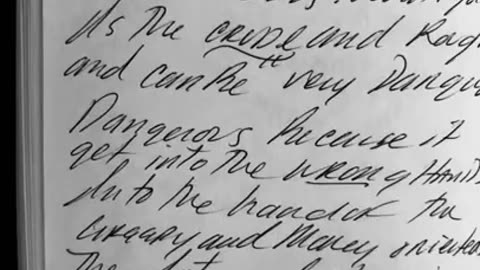 Is the crude and Rag
and can be " very Dange
Dangerous because it
get into the wrong Hands
Into the hand of the
Greedy and Money oriented
The